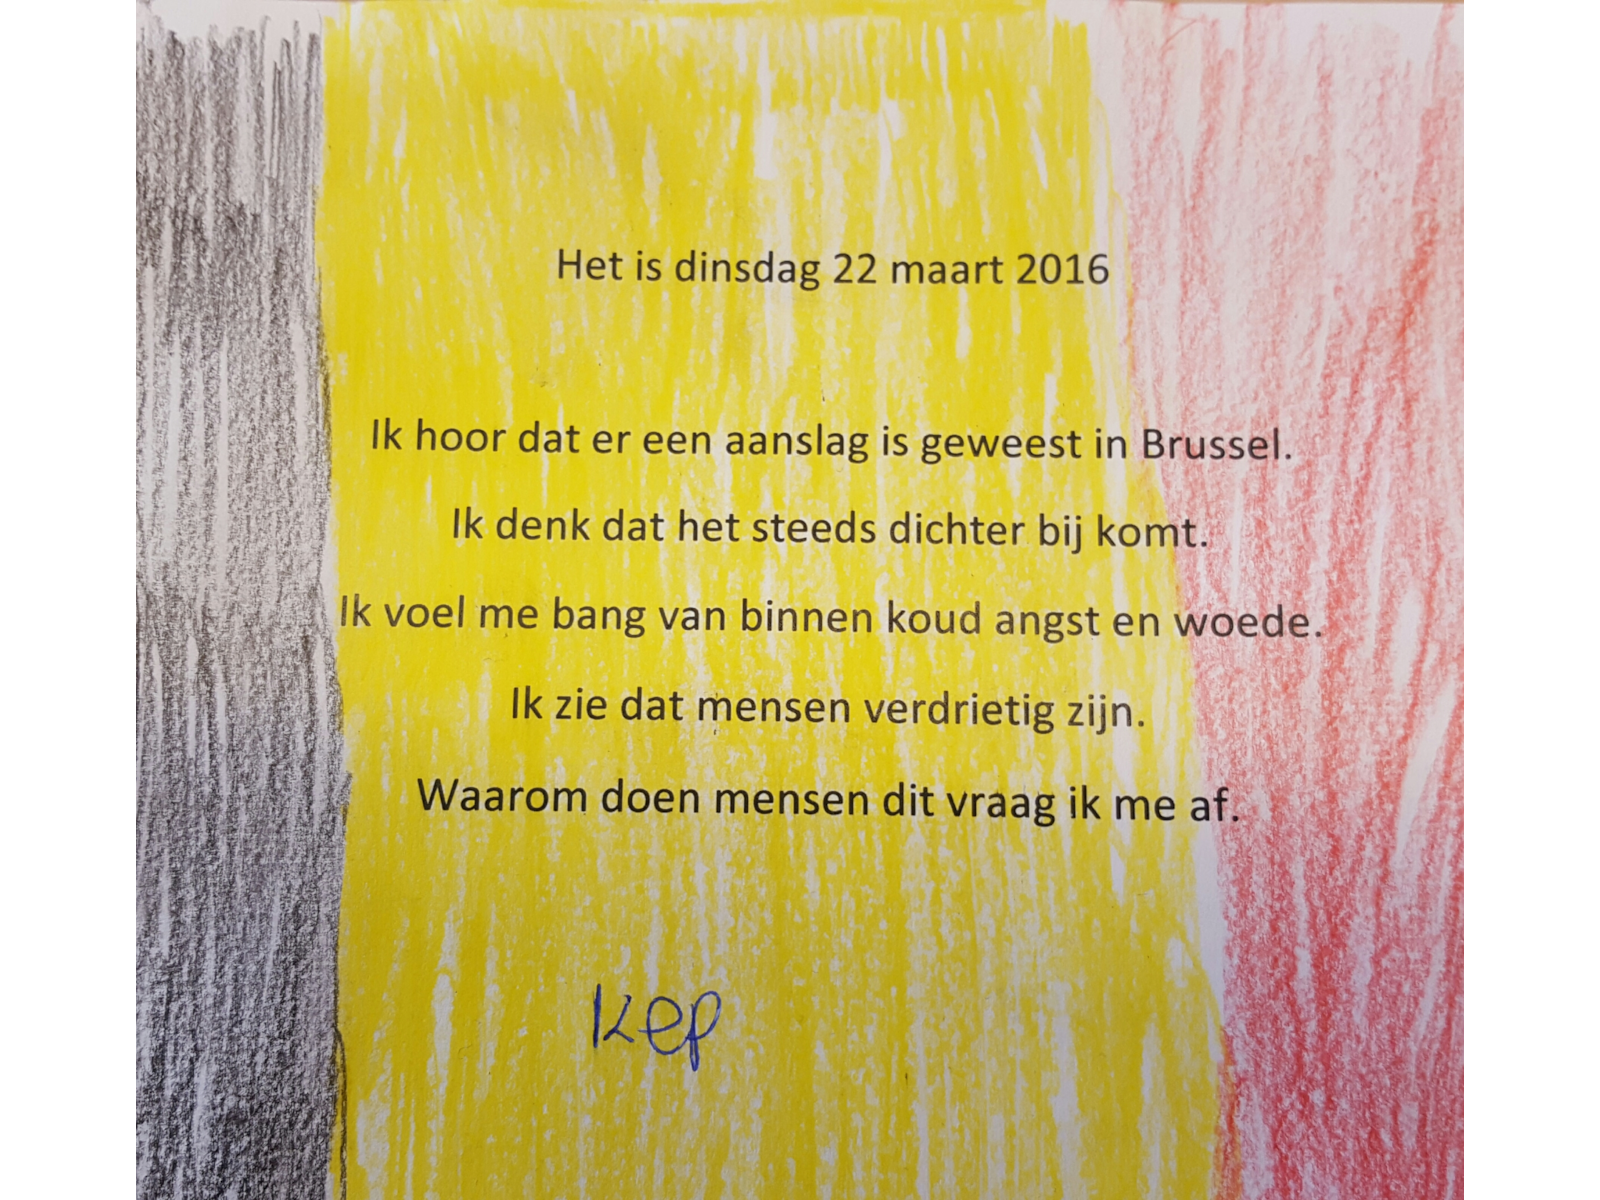 Het is dinsdag 22 maart 2016
Ik hoor dat er een aanslag is geweest in Brussel.
Ik denk dat het steeds dichter bij komt.
Ik voel me bang van binnen koud angst en woede.
Ik zie dat mensen verdrietig zijn.
Waarom doen mensen dit vraag ik me af.
Kep